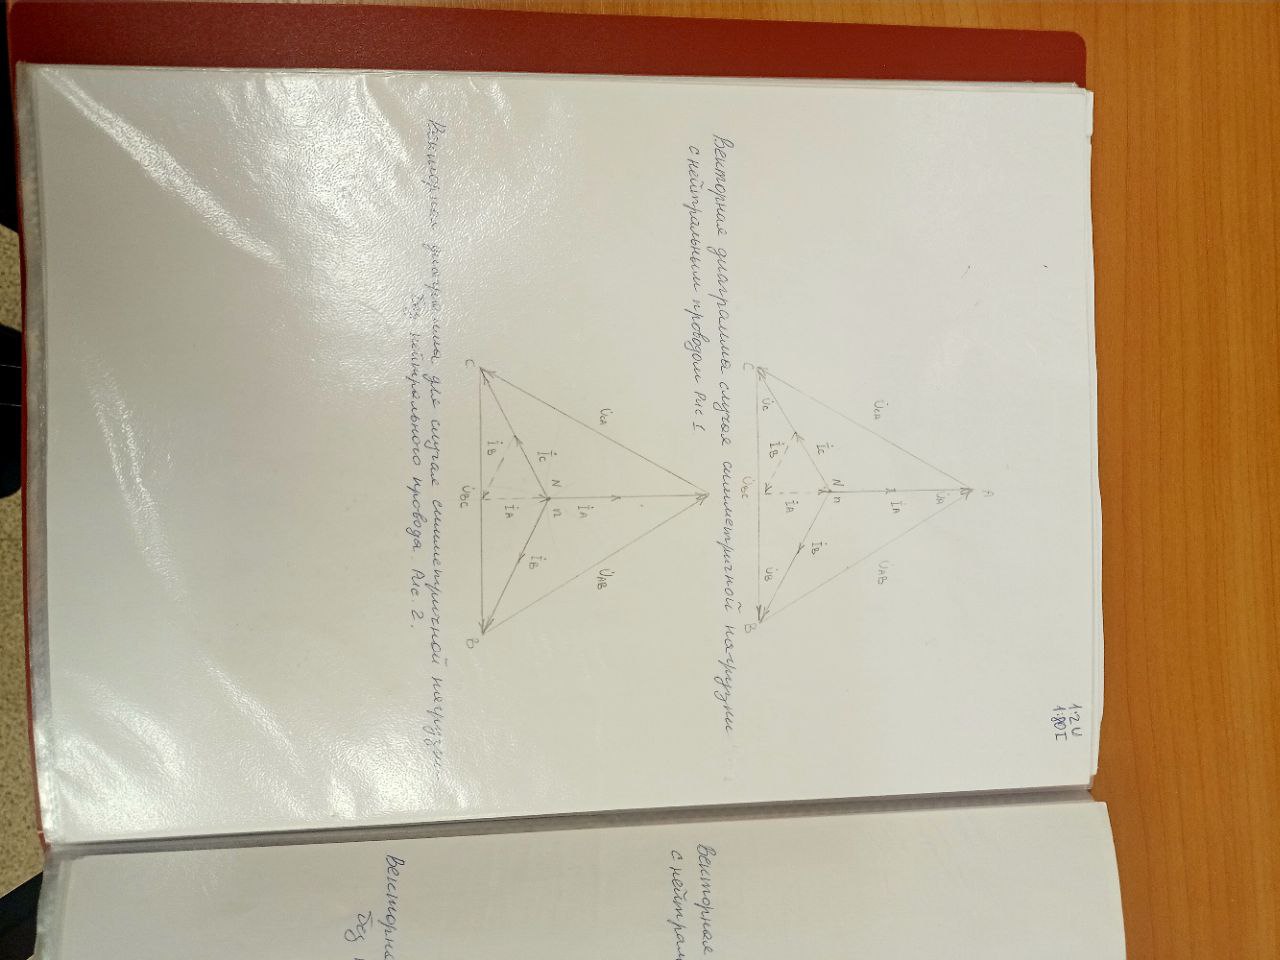 1:2 U
1:80 I
A
U̇A
İA
U̇CA
U̇AB
N n
İC
İB
İA
İB
U̇C
U̇B
C
U̇BC
B
Векторная диаграмма случая симметричной нагрузки
с нейтральным проводом Рис 1
U̇CA
U̇AB
İA
N n
İC
İB
İA
İB
C
U̇BC
B
Векторная диаграмма для случая симметричной нагрузки
без нейтрального провода. Рис. 2.
Векторная
с нейтрал
Векторна
без